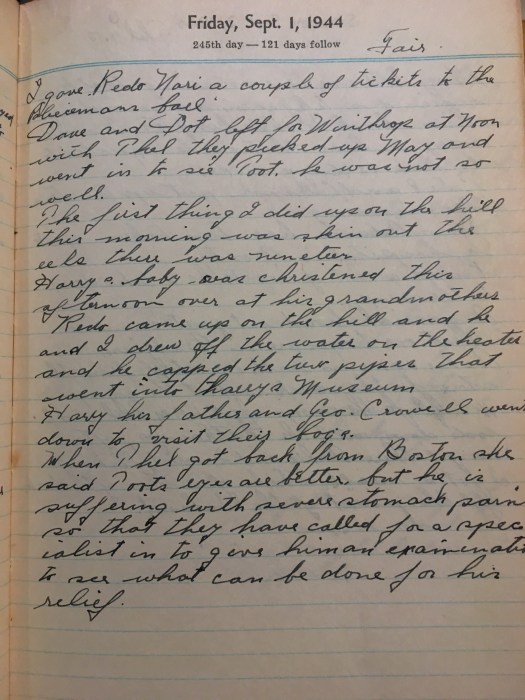 Friday, Sept. 1, 1944
245th day — 121 days follow
Fair.
I gave Redo Nari a couple of tickets to the
ball
Dave and Dot left for Winthrop at Noon
with Thel they picked up May and
went in to see Toot. he was not so
well.
The first thing I did up on the hill
this morning was skin out the
eels there was nineteen
Harrys baby was christened this
afternoon over at his grandmothers
Redo came up on the hill and he
and I drew off the water on the heater
and he capped the two pipes that
went into Harrys Museum
Harry his father and Geo. Crowell went
down to visit their bogs.
When Thel got back from Boston she
said Toots eyes are better, but he is
suffering with severe stomach pain
so that they have called for a spec
ialist in to give him an examinatio
to see what can be done for his
relief.